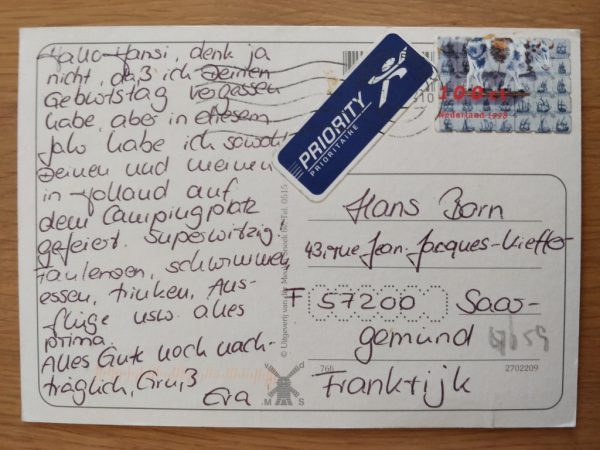 Hallo Hansi, denk ja
nicht, daß ich Deinen
Geburtstag vergessen
habe aber in diesem
Jahr habe ich sowohl
Deinen und meinen
in Holland auf
dem Campingplatz
gefeiert. Superwitzig.
Faulenzen, schwimmen
essen, trinken, Aus-
flüge usw. alles
prima.
Alles Gute noch nach-
träglich, Gruß
Eva
PRIORITY
PRIORITAIRE
100 ct
Nederland
Hans Born
43, rue Jean-Jacques-Kieffer
F 57200 Saar-
gemünd
Frankrijk
© Uitgeverij van der
Tel. 0515
M S
2702209